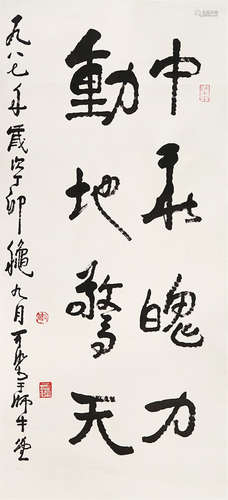 中华魄力
動地驚天
一九八七年歲次丁卯龝九月可染于師牛堂